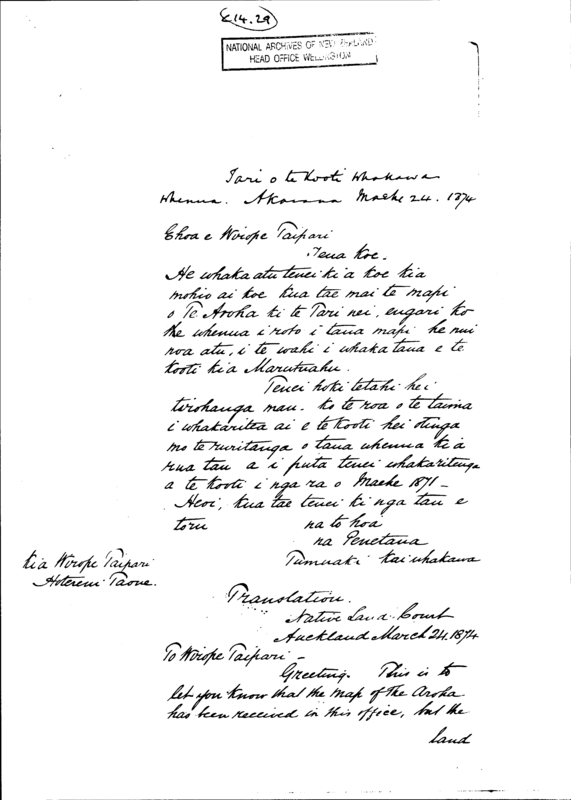 £14.29
NATIONAL ARCHIVES OF NEW ZEALAND
HEAD OFFICE WELLINGTON
Tari o te Kooti Whakawa
Whenua. Akarana Maehe 24. 1874
Ehoa e Wirope Taipari
Tena Koe.
He whaka atu tenei ki a koe kia
mohio ai koe kua tae mai te mapi
o Te Aroha ki te Tari nei, engari ko
the whenua i roto i taua mapi he nui
noa atu, i te wahi i whaka taua e te
Kooti kia Marutuahu.
Tenei hoki tetahi hei
tirohanga mau. ko te roa o te taima
i whakaritea ai e te Kooti hei otinga
mo te ruritanga o taua whenua ki a
rua tau a i puta tenei whakaritenga
a te Kooti i nga ra o Maehe 1871 -
Heoi, kua tae tenei ki nga tau e
toru
na to hoa
na Penetana
Tumuaki Kaiwhakawa
Kia Wirope Taipari
Hotereni Taone.
Translation.
Native Land Court
Auckland March 24. 1874
To Wirope Taipari -
Greeting. This is to
let you know that the map of the Aroha
has been received in this office, but the
land